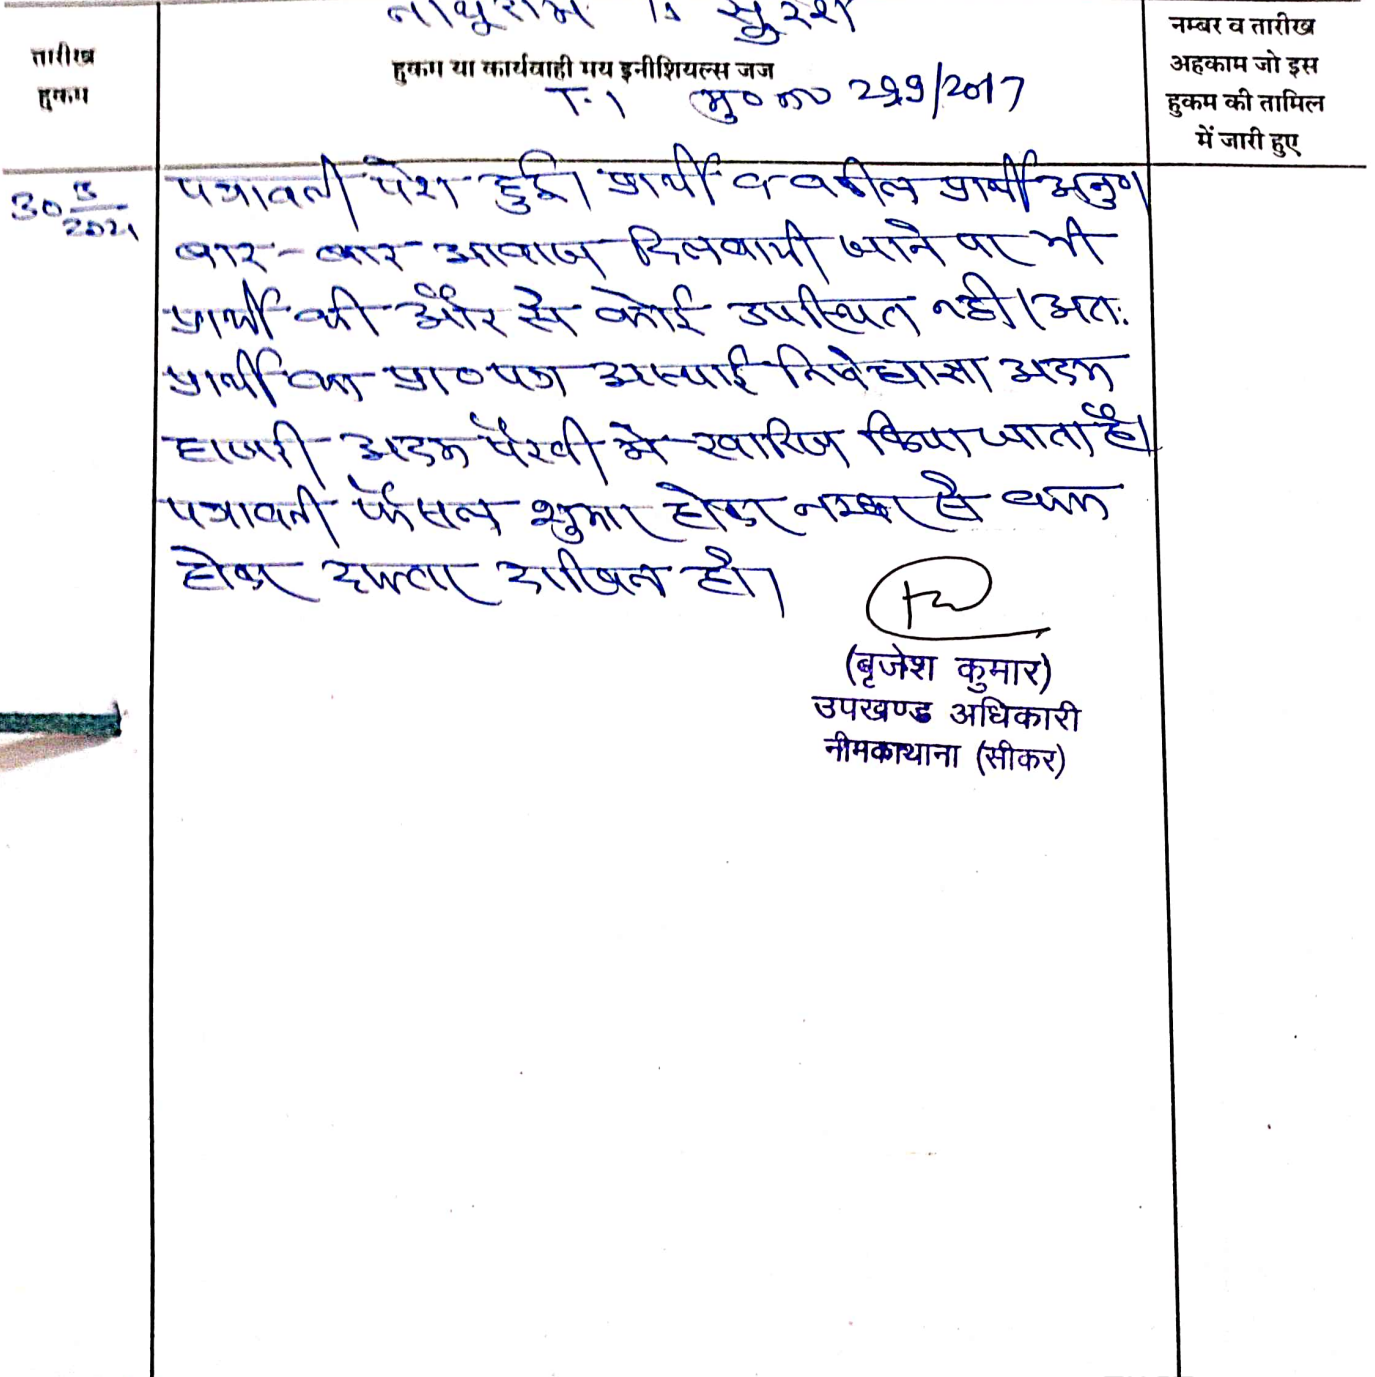 नाथूराम v सुरेश
तारीख
हुकम
हुकम या कार्यवाही मय इनीशियल्स जज
T.1 मु० न० 299/2017
नम्बर व तारीख
अहकाम जो इस
हुकम की तामिल
में जारी हुए
30 /2021
पत्रावली पेश हुई। प्रार्थी व वकील प्रार्थी अनुप०
बार-बार आवाज दिलवायी जाने पर भी
प्रार्थी की और से कोई उपस्थित नही। अतः
प्रार्थी का प्रा०पत्र अस्थाई निषेधाज्ञा अदम
हाजरी अदम पैरवी मे खारिज किया जाता है।
पत्रावली फैसल शुमार होकर नम्बर से कम
होकर दफ्तर दाखिल हो।
(बृजेश कुमार)
उपखण्ड अधिकारी
नीमकाथाना (सीकर)